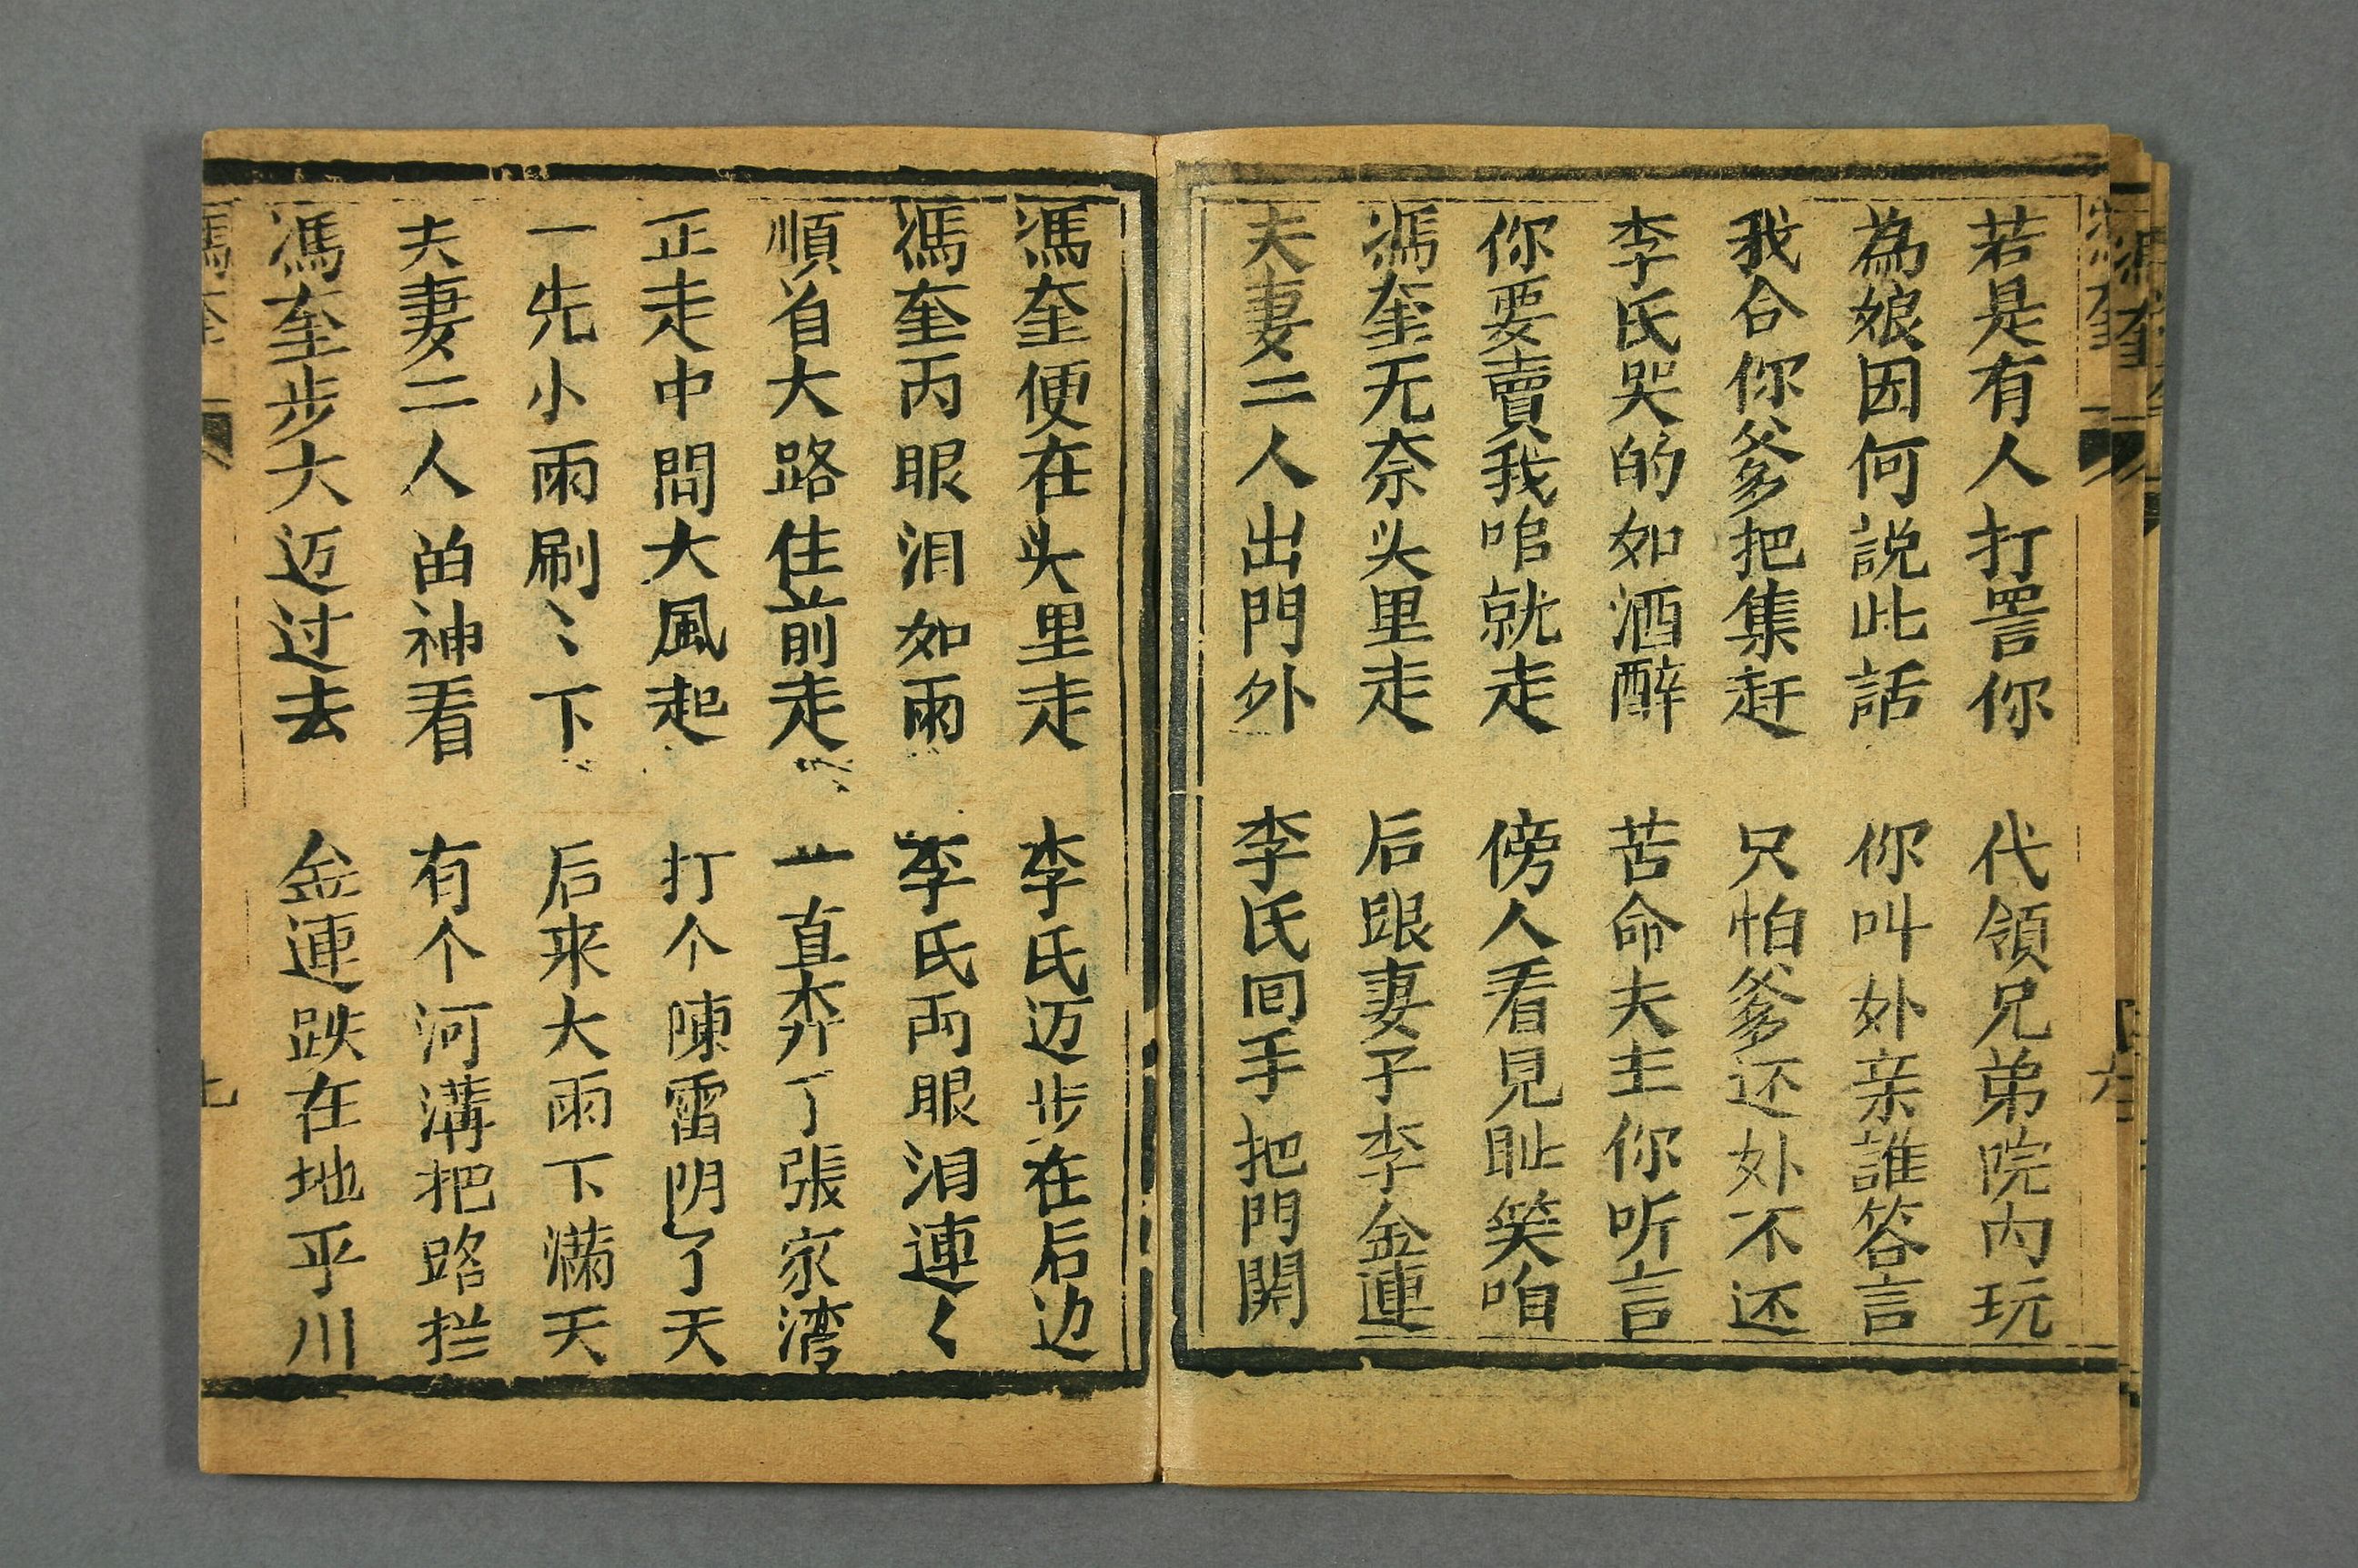 若是有人打詈你　代領兄弟院内玩
為娘因何説此話　你叫外亲誰答言
我合你爹把集赶　只怕爹还外不还
李氏哭的如酒醉　苦命夫主你听言
你要賣我咱就走　傍人看見耻笑咱
馮奎无奈头里走　后跟妻子李金連
夫妻二人出門外　李氏囘手把門関
馮奎便在头里走　李氏迈步在后边
馮奎両眼泪如雨　李氏両眼泪連〱
順着大路住前走　一直奔了張家湾
正走中間大風起　打个陳雷阴了天
一先小雨刷〻下　后来大雨下满天
夫妻二人留神看　有个河溝把路拦
馮奎步大迈过去　金連跌在地乎川
馮奎